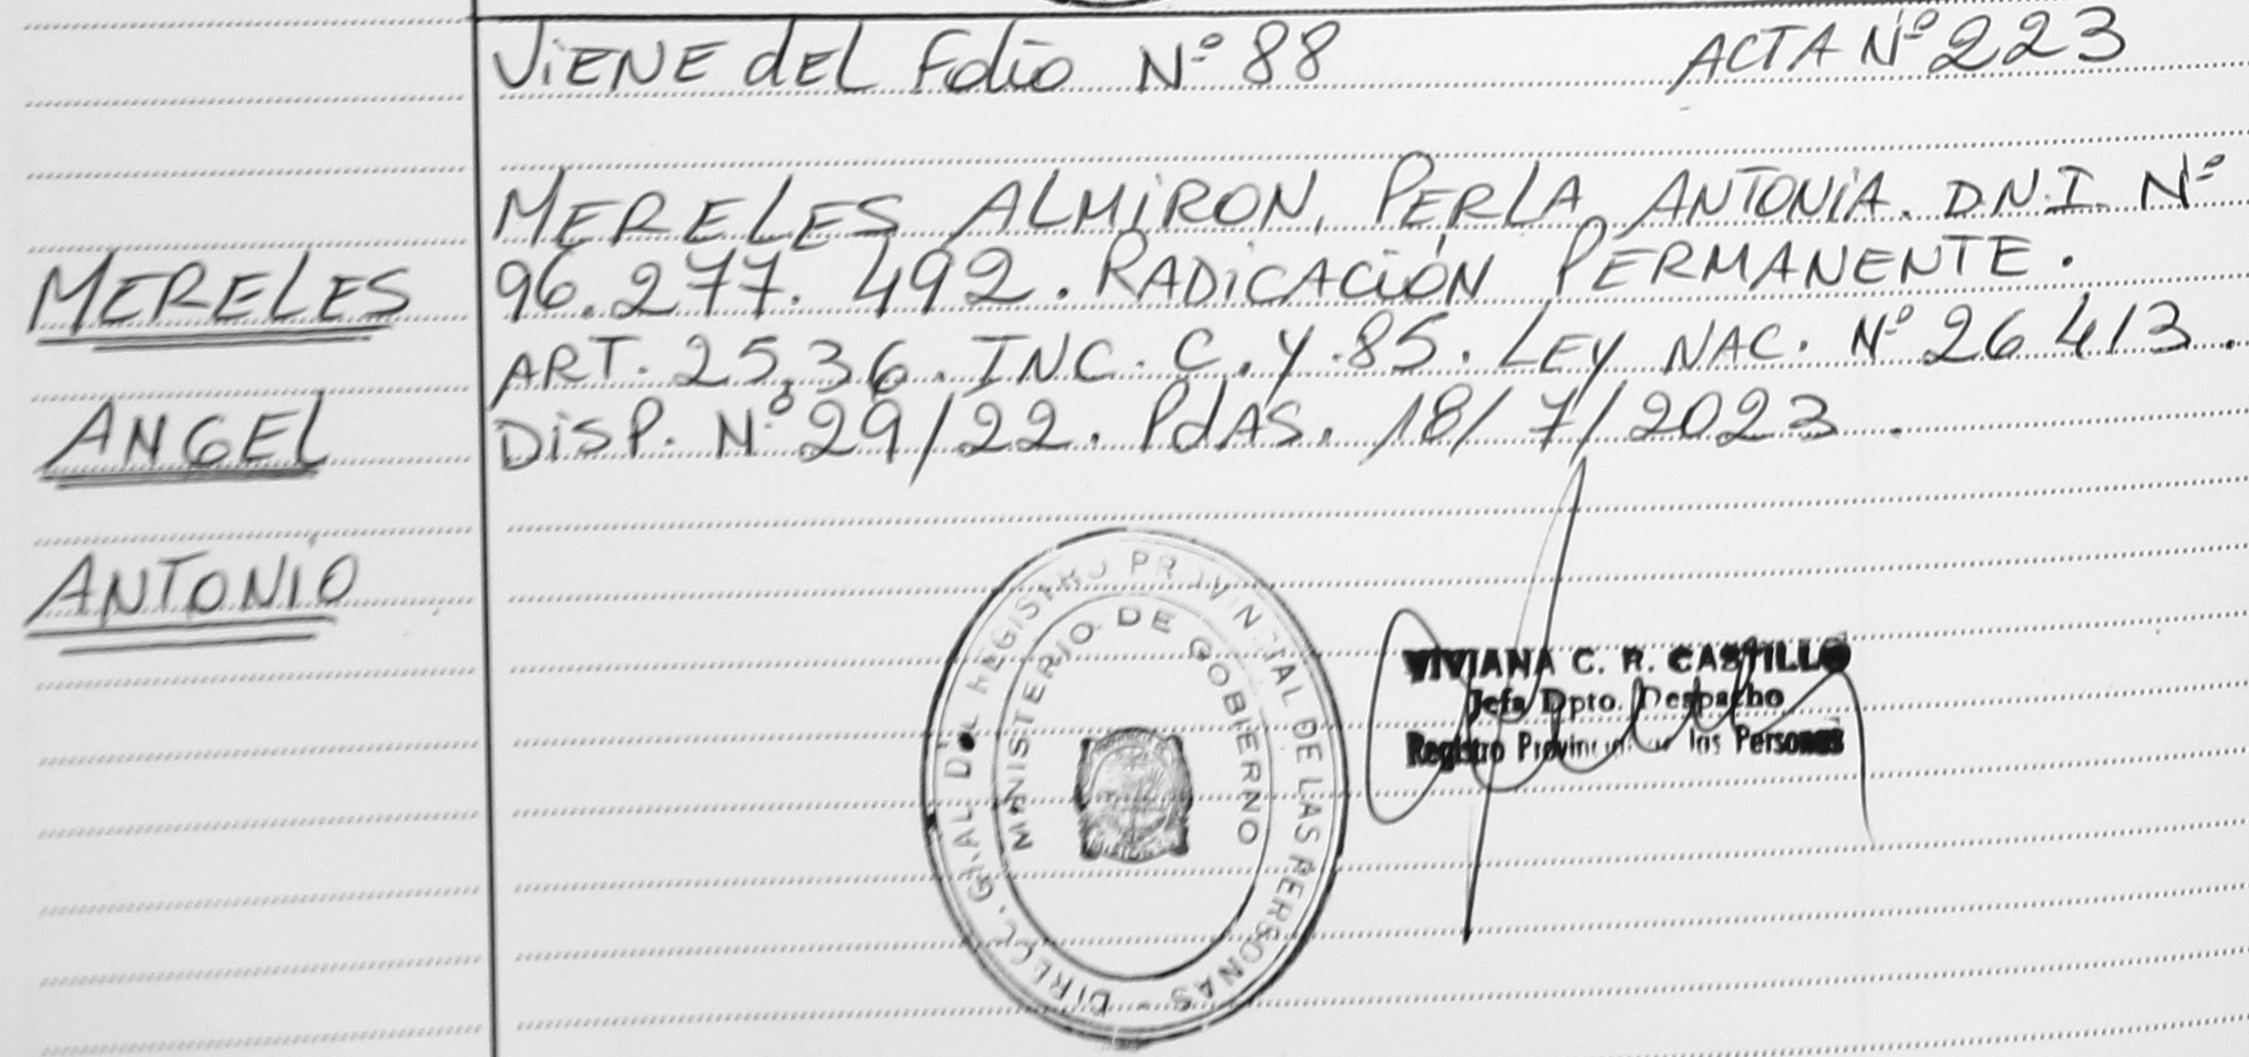 ViENE dEL Folio Nº 88 ACTA Nº 223
MERELES ALMiRON, PERLA ANTONiA. D.N.I. Nº
96.277.492. RADiCACiÓN PERMANENTE.
ART. 25,36. INC. C. Y. 85. LEY NAC. Nº 26413.
DiSP. Nº 29/22. PdAS. 18/7/2023.
MERELES
ANGEL
ANTONiO
DIRECC. GRAL DEL REGISTRO PROVINCIAL DE LAS PERSONAS -
MINISTERIO DE GOBIERNO
VIVIANA C. R. CASTILLO
Jefa Dpto. Despacho
Registro Provincial de las Personas